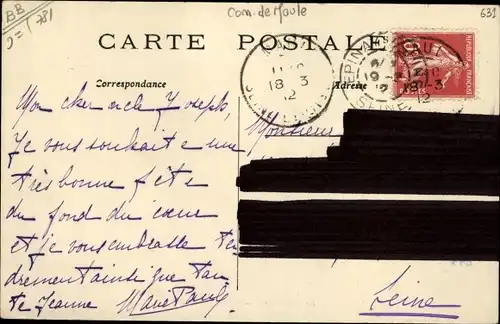 BB
Com. de Maule
631
CARTE POSTALE
Correspondance
Adresse
18 3
12
EPINAY
18-3
12
Mon cher oncle Joseph,
Je vous souhaite une
très bonne fête
du fond du cœur
et je vous embrasse ten
drement ainsi que tan
te Jeanne Marie Paule
Monsieur
Seine